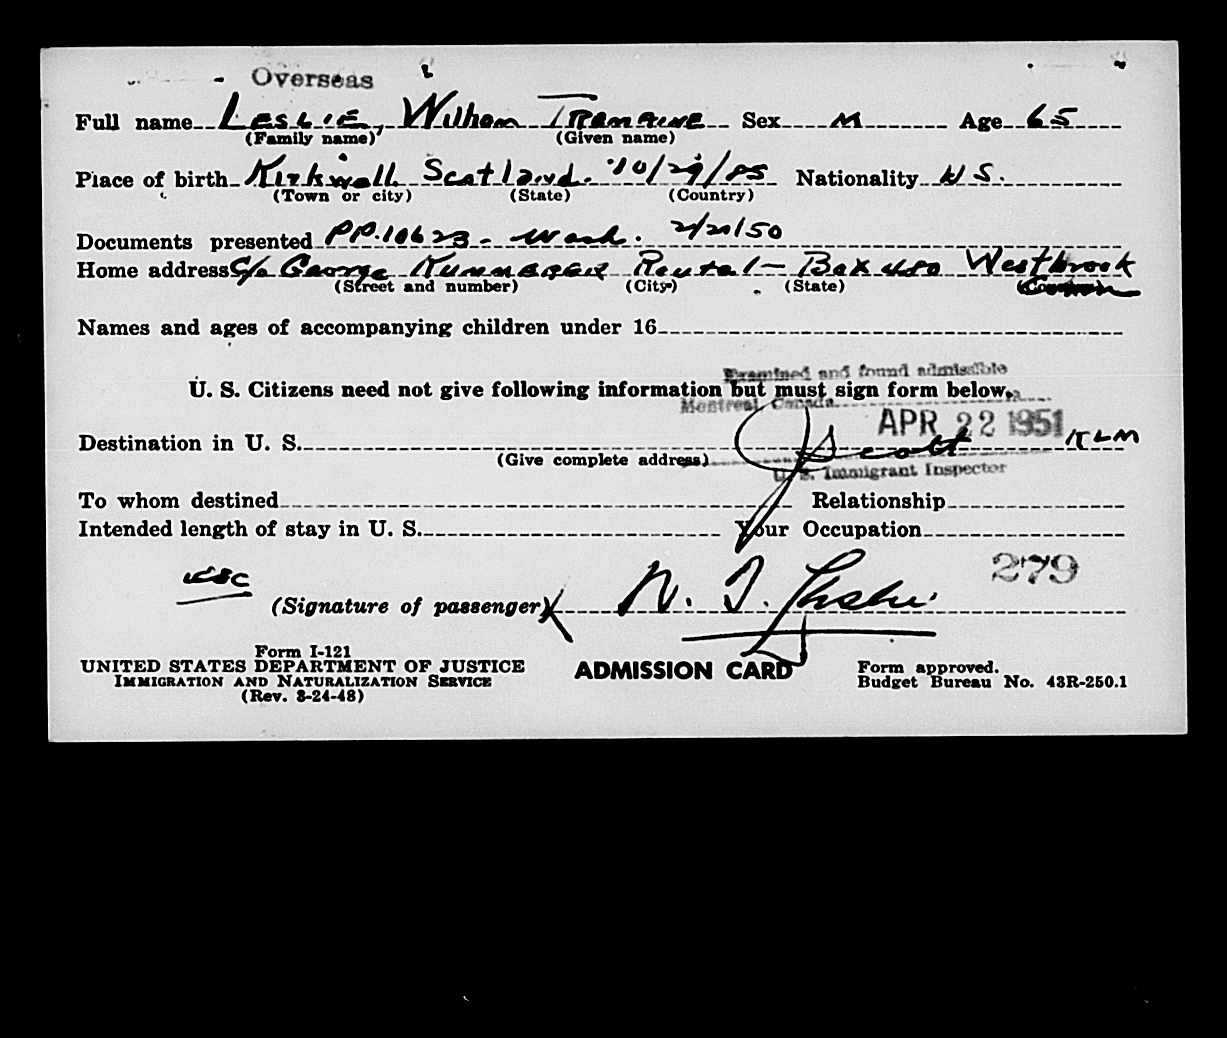 Overseas
Full name LESLIE, William TREMAINE Sex M Age 65
(Family name) (Given name)
Place of birth Kirkwall Scotland. 10/29/85 Nationality U S.
(Town or city) (State) (Country)
Documents presented PP.10623 - Wash. 2/20/50
Home address C/o George Box 480 Westbrook
(Street and number) (City) (State)
Names and ages of accompanying children under 16
Examined and found admissible
U. S. Citizens need not give following information but must sign form below.
Montreal, Canada
APR 22 1951
Destination in U. S. Scott KLM
(Give complete address)
U. S. Immigrant Inspector
To whom destined Relationship
Intended length of stay in U. S. Your Occupation
279
(Signature of passenger) W. T. Leslie
Form I-121
UNITED STATES DEPARTMENT OF JUSTICE ADMISSION CARD Form approved.
IMMIGRATION AND NATURALIZATION SERVICE Budget Bureau No. 43R-250.1
(Rev. 3-24-48)